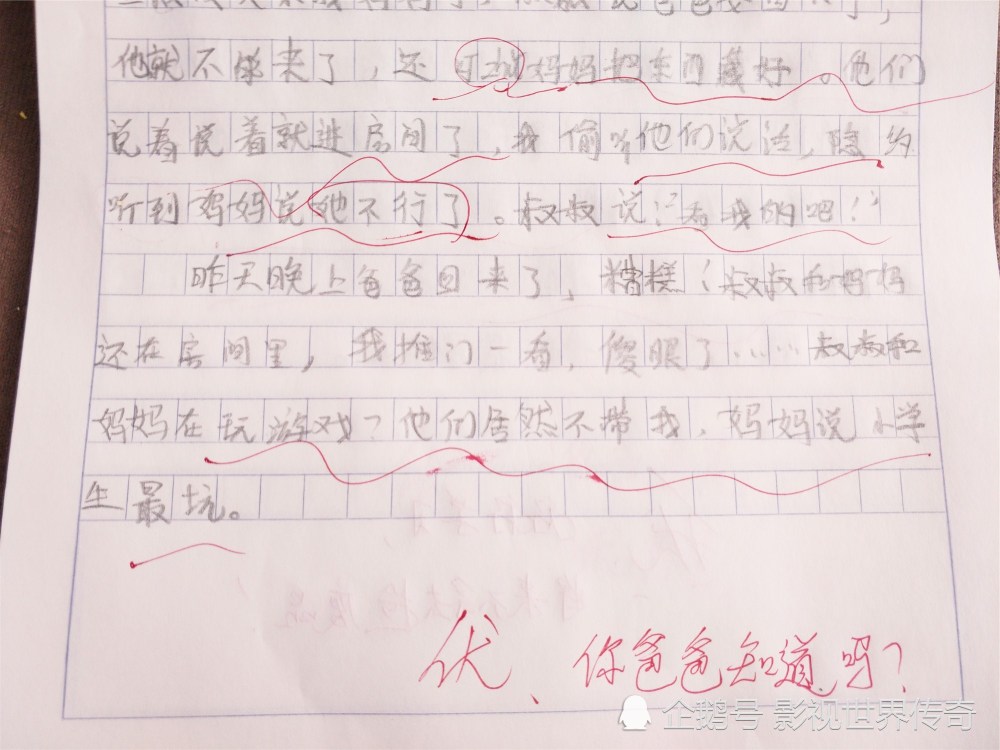 他就不能来了，还叮嘱妈妈把东西藏好。他们
说着说着就进房间了，我偷听他们说话，隐约
听到妈妈说她不行了。叔叔说！“看我的吧！”
昨天晚上爸爸回来了，糟糕！叔叔和妈妈
还在房间里，我推门一看，傻眼了……叔叔和
妈妈在玩游戏？他们居然不带我，妈妈说小学
生最坑。
优、你爸爸知道吗？
企鹅号 影视世界传奇